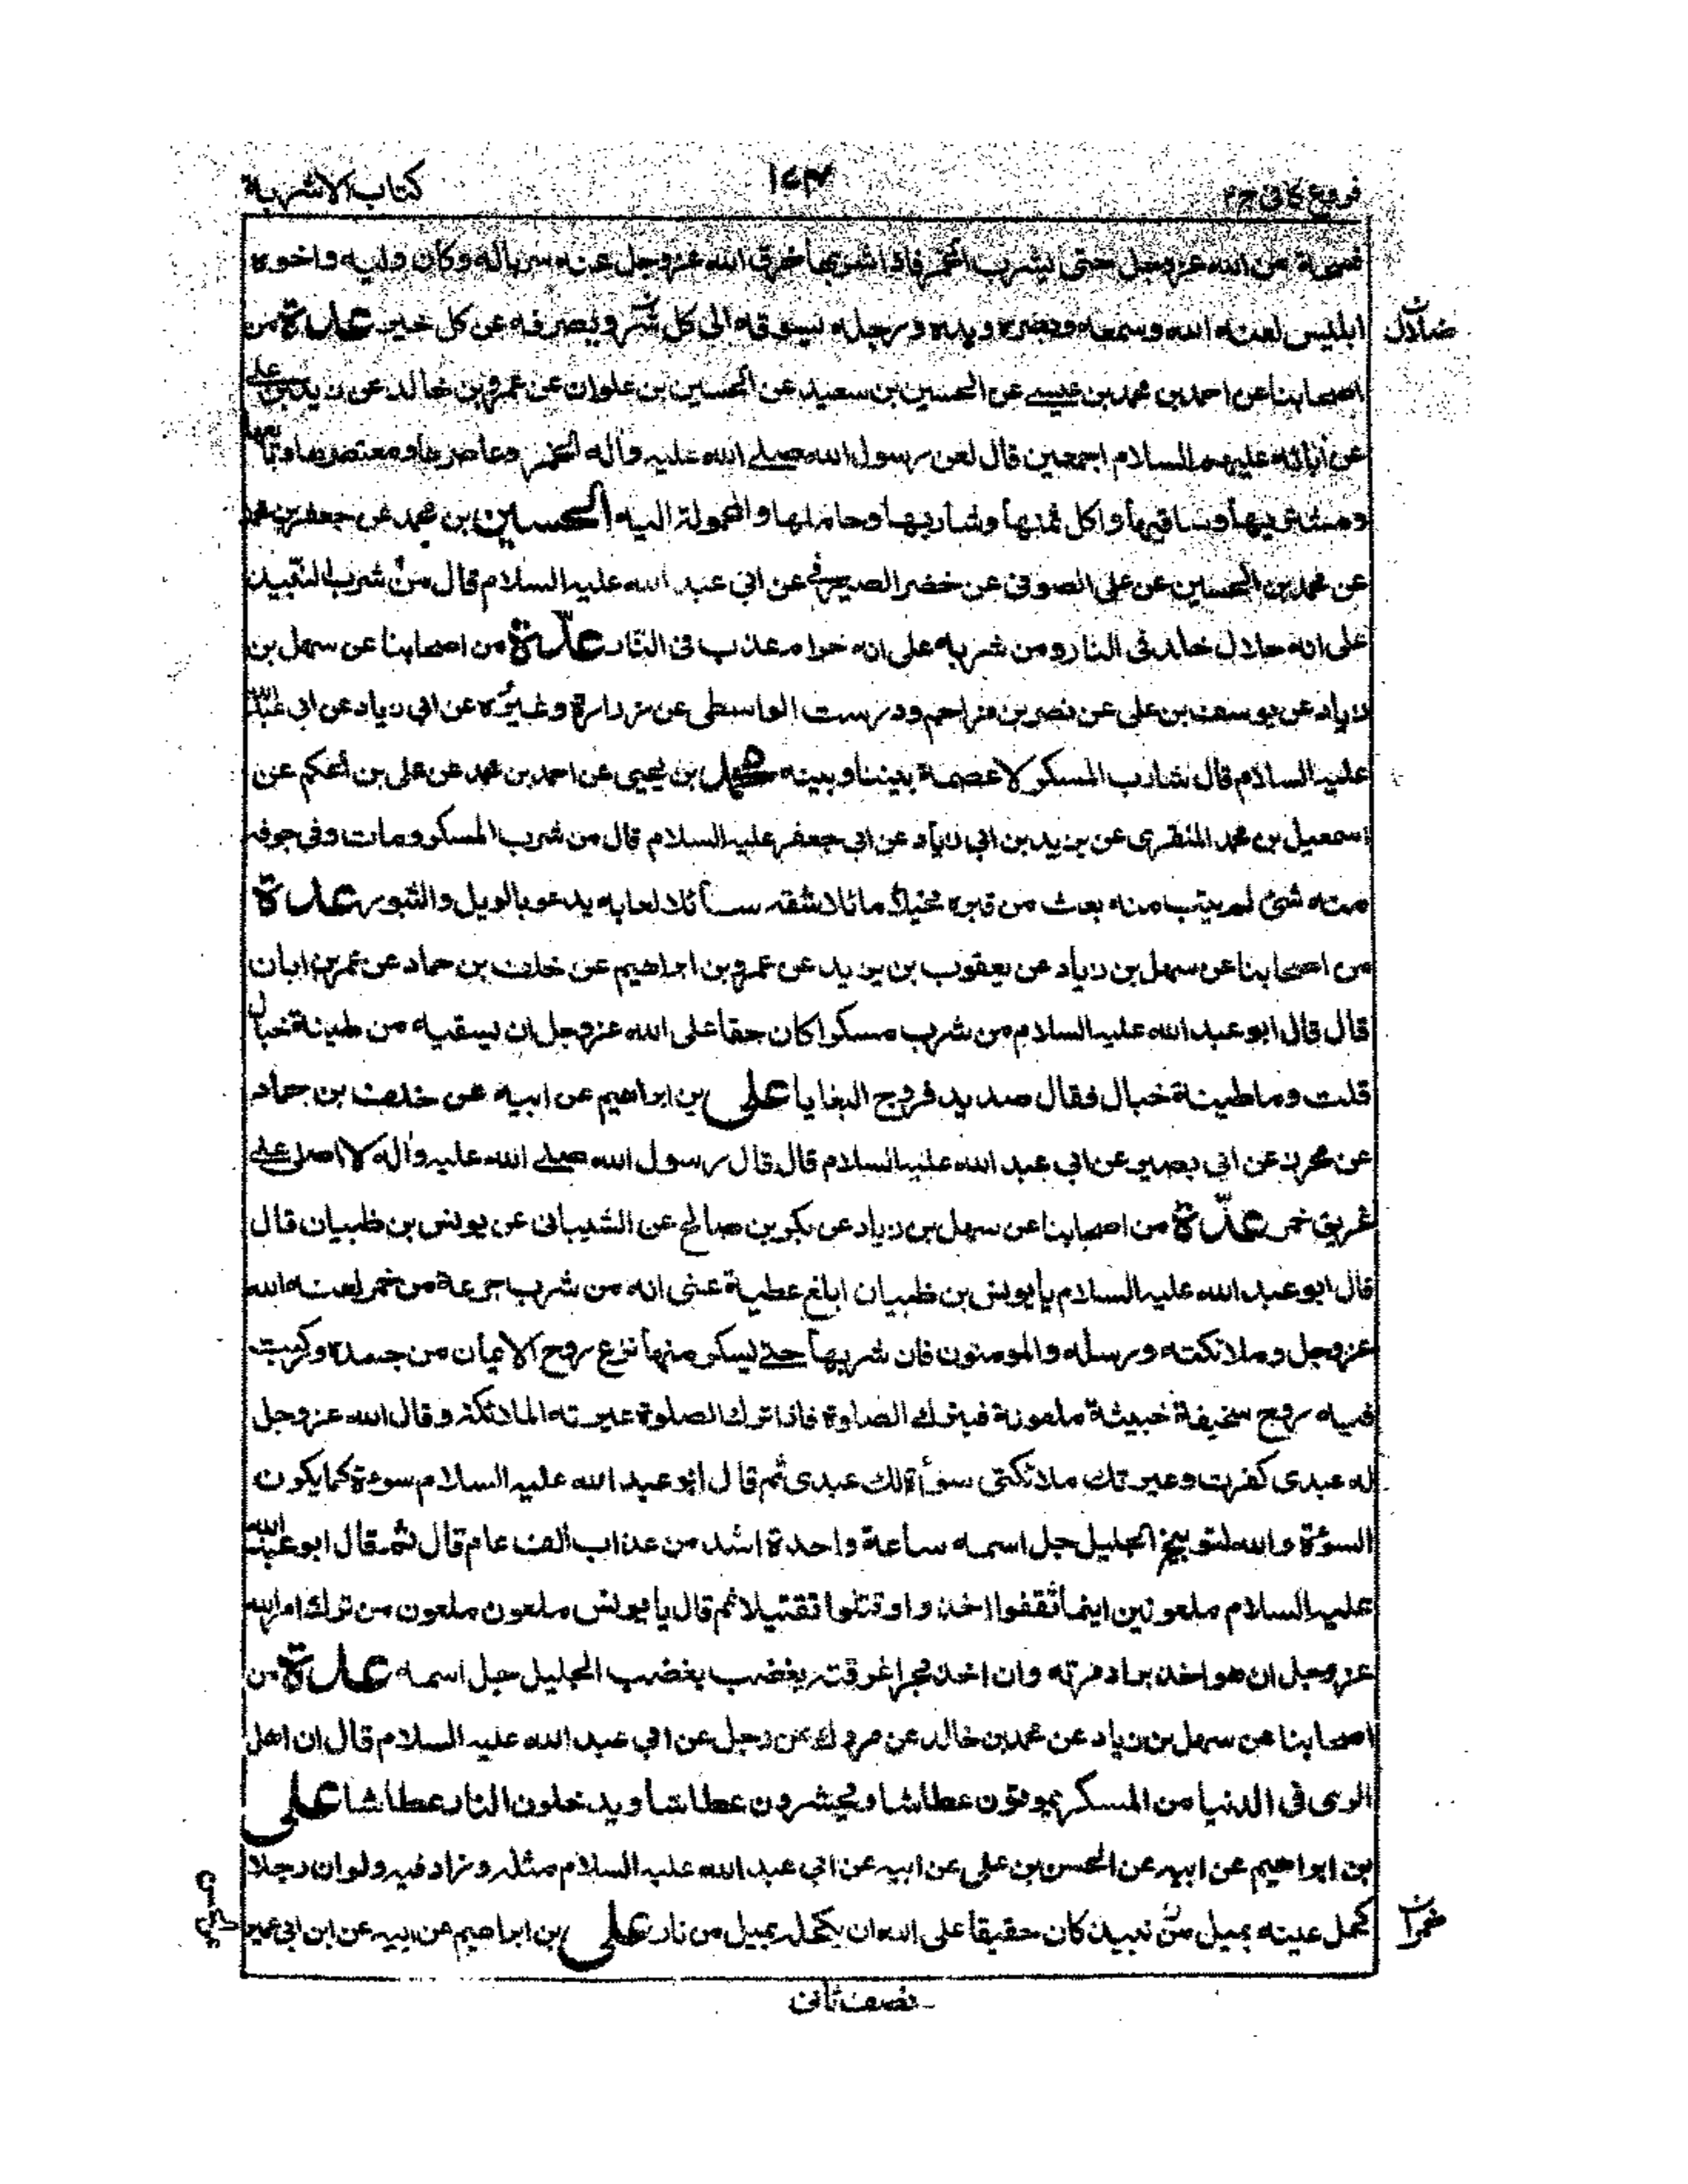 فروع كافى ج٢
١٤٣
كتاب الاشربة
فسحة من الله عزوجل حتى يشرب الخمر فاذا شربها خرق الله عزوجل عنه سرباله وكان وليه واخوه
ابليس لعنه الله وسمعه وبصره ويده ورجله يسوقه الى كل شر ويصرفه عن كل خير عدة من
ضلال
اصحابنا عن احمد بن محمد بن عيسى عن الحسين بن سعيد عن الحسين بن علوان عن عمرو بن خالد عن زيد بن على
عن آبائه عليهم السلام اجمعين قال لعن رسول الله صلى الله عليه وآله الخمر وعاصرها ومعتصرها وبائعها
ومشتريها وساقيها وآكل ثمنها وشاربها وحاملها والمحمولة اليه الحسين بن محمد عن جعفر بن محمد
عن محمد بن الحسين عن على الصوفى عن خضر الصيرفى عن ابى عبد الله عليه السلام قال من شرب النبيذ
على انه حلال خلد فى النار ومن شربه على انه حرام عذب فى النار عدة من اصحابنا عن سهل بن
زياد عن يوسف بن على عن نصر بن مزاحم ودرست الواسطى عن زرارة وغيره عن ابى زياد عن ابى عبد الله
عليه السلام قال شارب المسكر لا عصمة بيننا وبينه محمد بن يحيى عن احمد بن محمد عن على بن الحكم عن
اسمعيل بن محمد المنقرى عن يزيد بن ابى زياد عن ابى جعفر عليه السلام قال من شرب المسكر ومات وفى جوفه
منه شئ لم يتب منه بعث من قبره مخبلا مائلا شقه سائلا لعابه يدعو بالويل والثبور عدة
من اصحابنا عن سهل بن زياد عن يعقوب بن يزيد عن عمرو بن ابراهيم عن خلف بن حماد عن عمر بن ابان
قال قال ابو عبد الله عليه السلام من شرب مسكرا كان حقا على الله عزوجل ان يسقيه من طينة خبال
قلت وما طينة خبال فقال صديد فروج البغايا على بن ابراهيم عن ابيه عن خلف بن حماد
عن محرز عن ابى بصير عن ابى عبد الله عليه السلام قال قال رسول الله صلى الله عليه وآله لا اصلى على
غريق خمر عدة من اصحابنا عن سهل بن زياد عن بكر بن صالح عن الشيبانى عن يونس بن ظبيان قال
قال ابو عبد الله عليه السلام يا يونس بن ظبيان ابلغ عطية عنى انه من شرب جرعة من خمر لعنه الله
عزوجل وملائكته ورسله والمومنون فان شربها حتى يسكر منها نزع روح الايمان من جسده وركبت
فيه روح سخيفة خبيثة ملعونة فيترك الصلوة فاذا ترك الصلوة عيرته الملائكة وقال الله عزوجل
له عبدى كفرت وعيرتك ملائكتى سوأة لك عبدى ثم قال ابو عبد الله عليه السلام سوءة كما يكون
السوءة والله لتوبيخ الجليل جل اسمه ساعة واحدة اشد من عذاب الف عام قال ثم قال ابو عبد الله
عليه السلام ملعونين اينما ثقفوا اخذوا وقتلوا تقتيلا ثم قال يا يونس ملعون ملعون من ترك امر الله
عزوجل ان هو اخذ برا دمرته وان اخذ بحرا غرقته يغضب بغضب الجليل جل اسمه عدة من
اصحابنا عن سهل بن زياد عن محمد بن خالد عن مروك عن رجل عن ابى عبد الله عليه السلام قال ان اهل
الرى فى الدنيا من المسكر يموتون عطاشا ويحشرون عطاشا ويدخلون النار عطاشا على
بن ابراهيم عن ابيه عن الحسن بن على عن ابيه عن ابى عبد الله عليه السلام مثله وزاد فيه ولو ان رجلا
كحل عينه بميل من نبيذ كان حقيقا على الله ان يكحله بميل من نار على بن ابراهيم عن ابيه عن ابن ابى عمير
نصف ثانى